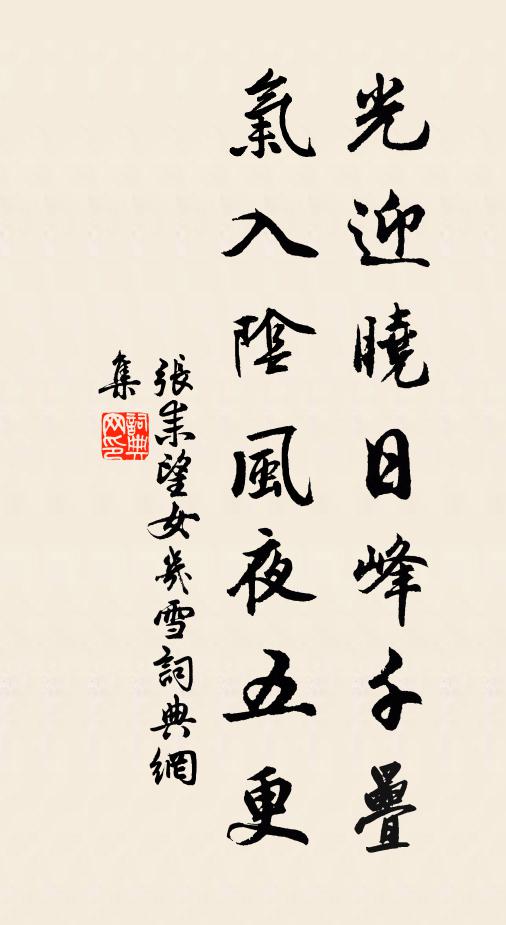 光迎曉日峰千疊
氣入陰風夜五更
張耒望女几雪詞典網
集
詞典网印